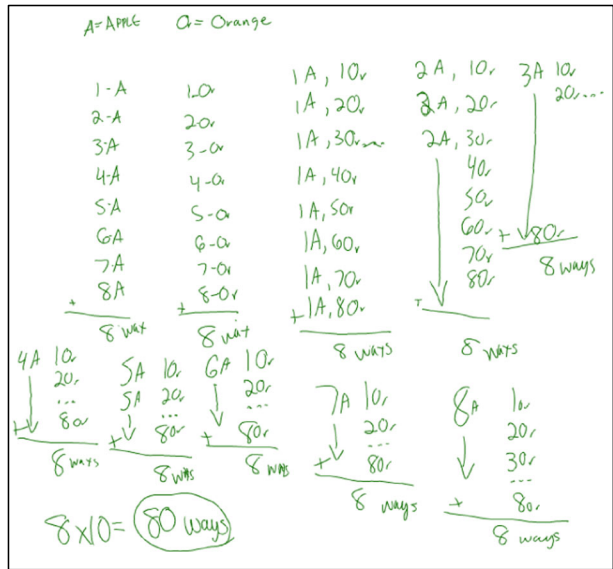 A=APPLE Or=Orange
1-A
2-A
3-A
4-A
5-A
6A
7-A
+ 8A
8 way
1-Or
2Or
3-Or
4-Or
5-Or
6-Or
7-Or
+ 8-Or
8 way
1A, 1Or
1A, 2Or
1A, 3Or...
1A, 4Or
1A, 5Or
1A, 6Or
1A, 7Or
+ 1A, 8Or
8 ways
2A, 1Or
2A, 2Or
2A, 3Or
4Or
5Or
6Or
7Or
8Or
+
8 ways
3A 1Or
2Or...
+ 8Or
8 ways
4A 1Or
2Or
...
+ 8Or
8 ways
5A 1Or
5A 2Or
...
+ 8Or
8 ways
6A 1Or
2Or
...
+ 8Or
8 ways
7A 1Or
2Or
...
+ 8Or
8 ways
8A 1Or
2Or
3Or
...
+ 8Or
8 ways
8x10= 80 ways